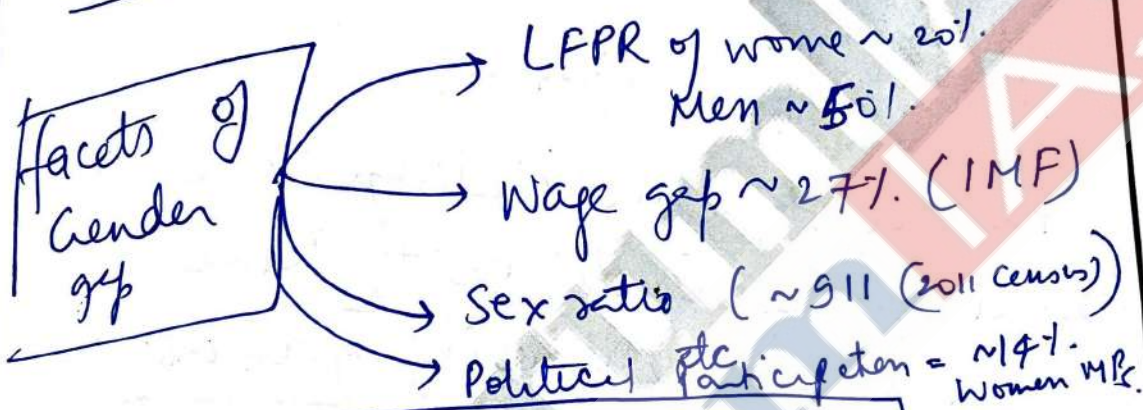 facets of
Gender
gap
LFPR of wome ~ 20%.
Men ~ 50%.
Wage gap ~ 27%. (IMF)
Sex ratio (~911 (2011 census))
etc
Political Participation = ~14%.
Women MPs.